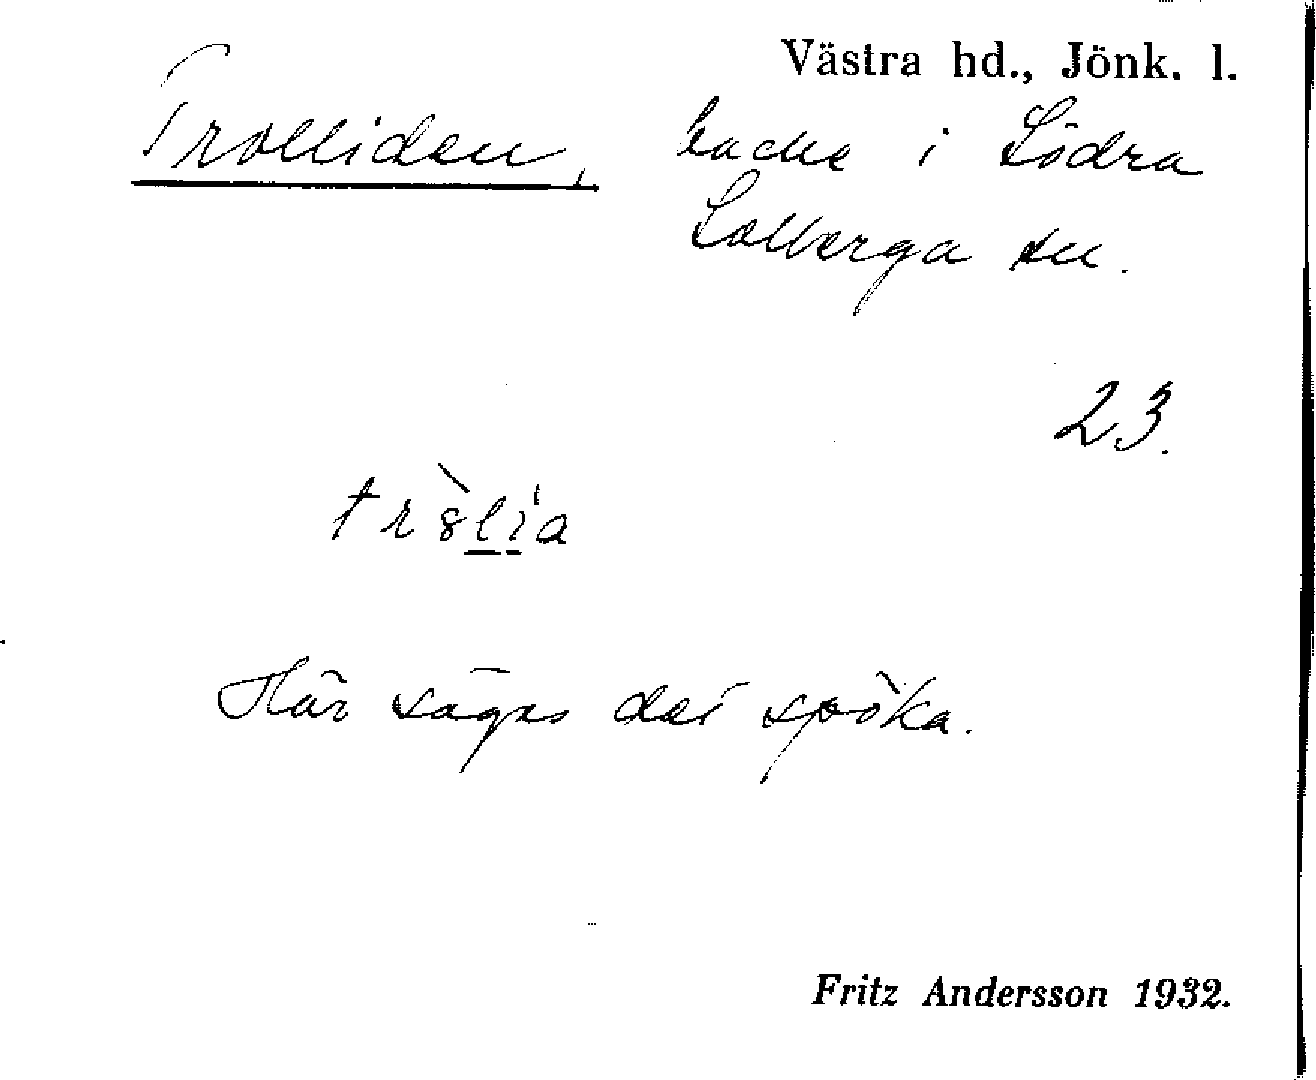 Västra hd., Jönk. l.
Trolliden, backe i Södra
Solberga sn.
23.
trȯ̀lia
Här säges det spöka.
Fritz Andersson 1932.